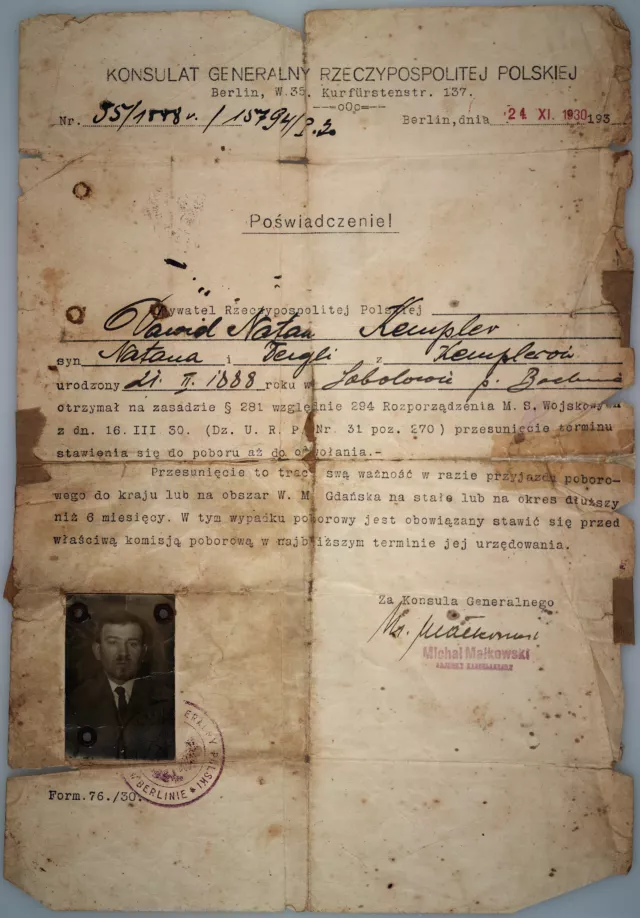 KONSULAT GENERALNY RZECZYPOSPOLITEJ POLSKIEJ
Berlin, W.35. Kurfürstenstr. 137.
---oOo---
Nr. 35/1888r./15794/
Berlin,dnia 24 XI. 1930 193
Poświadczenie!
Obywatel Rzeczypospolitej Polskiej
Dawid Natan Kempler
syn Natana i z Kemplerów
urodzony 21. II. 1888 roku w
otrzymał na zasadzie § 281 względnie 294 Rozporządzenia M. S. Wojskowych
z dn. 16. III 30. (Dz. U. R. P. Nr. 31 poz. 270) przesunięcie terminu
stawienia się do poboru aż do odwołania.-
Przesunięcie to traci swą ważność w razie przyjazdu poboro-
wego do kraju lub na obszar W. M. Gdańska na stałe lub na okres dłuższy
niż 6 miesięcy. W tym wypadku poborowy jest obowiązany stawić się przed
właściwą komisją poborową w najbliższym terminie jej urzędowania.
Za Konsula Generalnego
Michał Małkowski
POLSKI
W BERLINIE
Form.76./30.